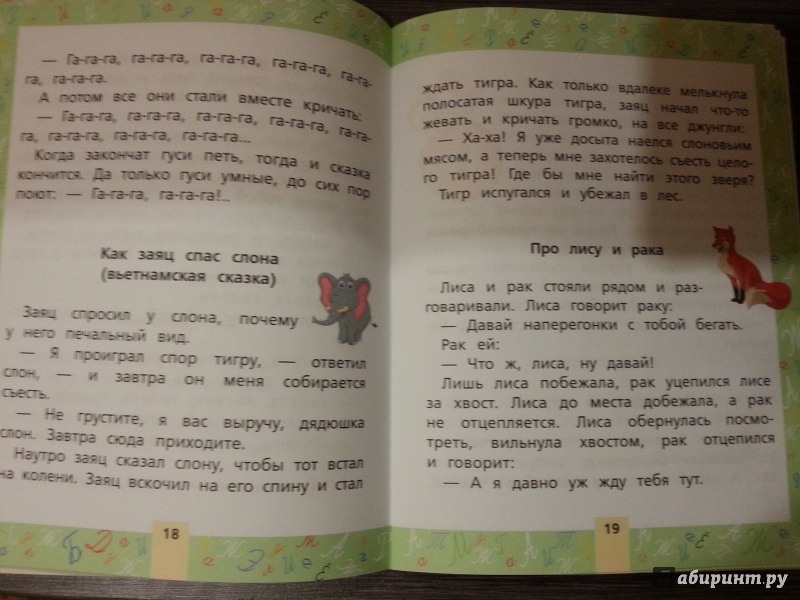 — Га-га-га, га-га-га, га-га-га, га-га-га, га-га-
га, га-га-га.
А потом все они стали вместе кричать:
— Га-га-га, га-га-га, га-га-га, га-га-га, га-га-
га, га-га-га, га-га-га, га-га-га...
Когда закончат гуси петь, тогда и сказка
кончится. Да только гуси умные, до сих пор
поют: — Га-га-га, га-га-га!..
Как заяц спас слона
(вьетнамская сказка)
Заяц спросил у слона, почему
у него печальный вид.
— Я проиграл спор тигру, — ответил
слон, — и завтра он меня собирается
съесть.
— Не грустите, я вас выручу, дядюшка
слон. Завтра сюда приходите.
Наутро заяц сказал слону, чтобы тот встал
на колени. Заяц вскочил на его спину и стал
18
ждать тигра. Как только вдалеке мелькнула
полосатая шкура тигра, заяц начал что-то
жевать и кричать громко, на все джунгли:
— Ха-ха! Я уже досыта наелся слоновьим
мясом, а теперь мне захотелось съесть цело-
го тигра! Где бы мне найти этого зверя?
Тигр испугался и убежал в лес.
Про лису и рака
Лиса и рак стояли рядом и раз-
говаривали. Лиса говорит раку:
— Давай наперегонки с тобой бегать.
Рак ей:
— Что ж, лиса, ну давай!
Лишь лиса побежала, рак уцепился лисе
за хвост. Лиса до места добежала, а рак
не отцепляется. Лиса обернулась посмо-
треть, вильнула хвостом, рак отцепился
и говорит:
— А я давно уж жду тебя тут.
19
абиринт.ру